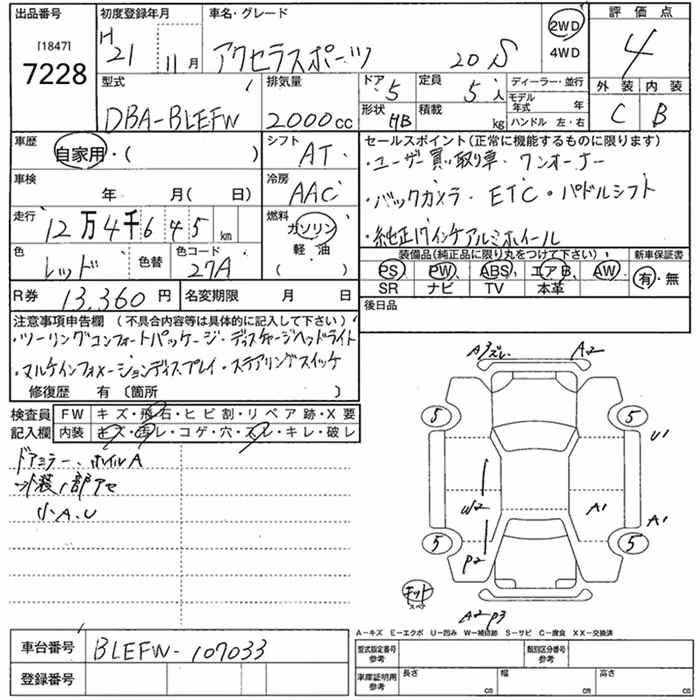 出品番号 初度登録年月 車名・グレード 評価点
[1847]
7228
H 21 11月 アクセラスポーツ 20S 2WD 4WD 4
型式 排気量 ドア 5 定員 5人 ディーラー・並行 外装 内装
DBA-BLEFW 2000cc 形状 HB 積載 kg モデル年式 年 ハンドル 左・右 C B
車歴 自家用・( ) シフト AT セールスポイント(正常に機能するものに限ります)
・ユーザー買い取り車・ワンオーナー
車検 年 月( 日) 冷房 AAC ・バックカメラ・ETC・パドルシフト
走行 12万4千645km 燃料 ガソリン 軽油 ( ) ・純正17インチアルミホイール
色 レッド 色替 色コード 27A 装備品(純正品に限り丸をつけて下さい) 新車保証書
PS PW ABS エアB AW 有・無
SR ナビ TV 本革
R券 13,360円 名変期限 月 日 後日品
注意事項申告欄 (不具合内容等は具体的に記入して下さい)
・ツーリングコンフォートパッケージ・ディスチャージヘッドライト
・マルチインフォメーションディスプレイ・ステアリングスイッチ
修復歴 有 〔箇所 〕
検査員 FW キズ・飛石・ヒビ割・リペア跡・X要
記入欄 内装 キズ・汚レ・コゲ・穴・スレ・キレ・破レ
ドアミラー、ホイルA
外装1部アセ
小A.U
Aヨズレ A2
5 5
U1
W2 A1 A1
5 P2 5
キット
スペア
A2 P3
A-キズ E-エクボ U-凹み W-補修跡 S-サビ C-腐食 XX-交換済
車台番号 BLEFW-107033 型式指定番号 参考 類別区分番号 参考
登録番号 車庫証明用 参考 長さ cm 幅 cm 高さ cm